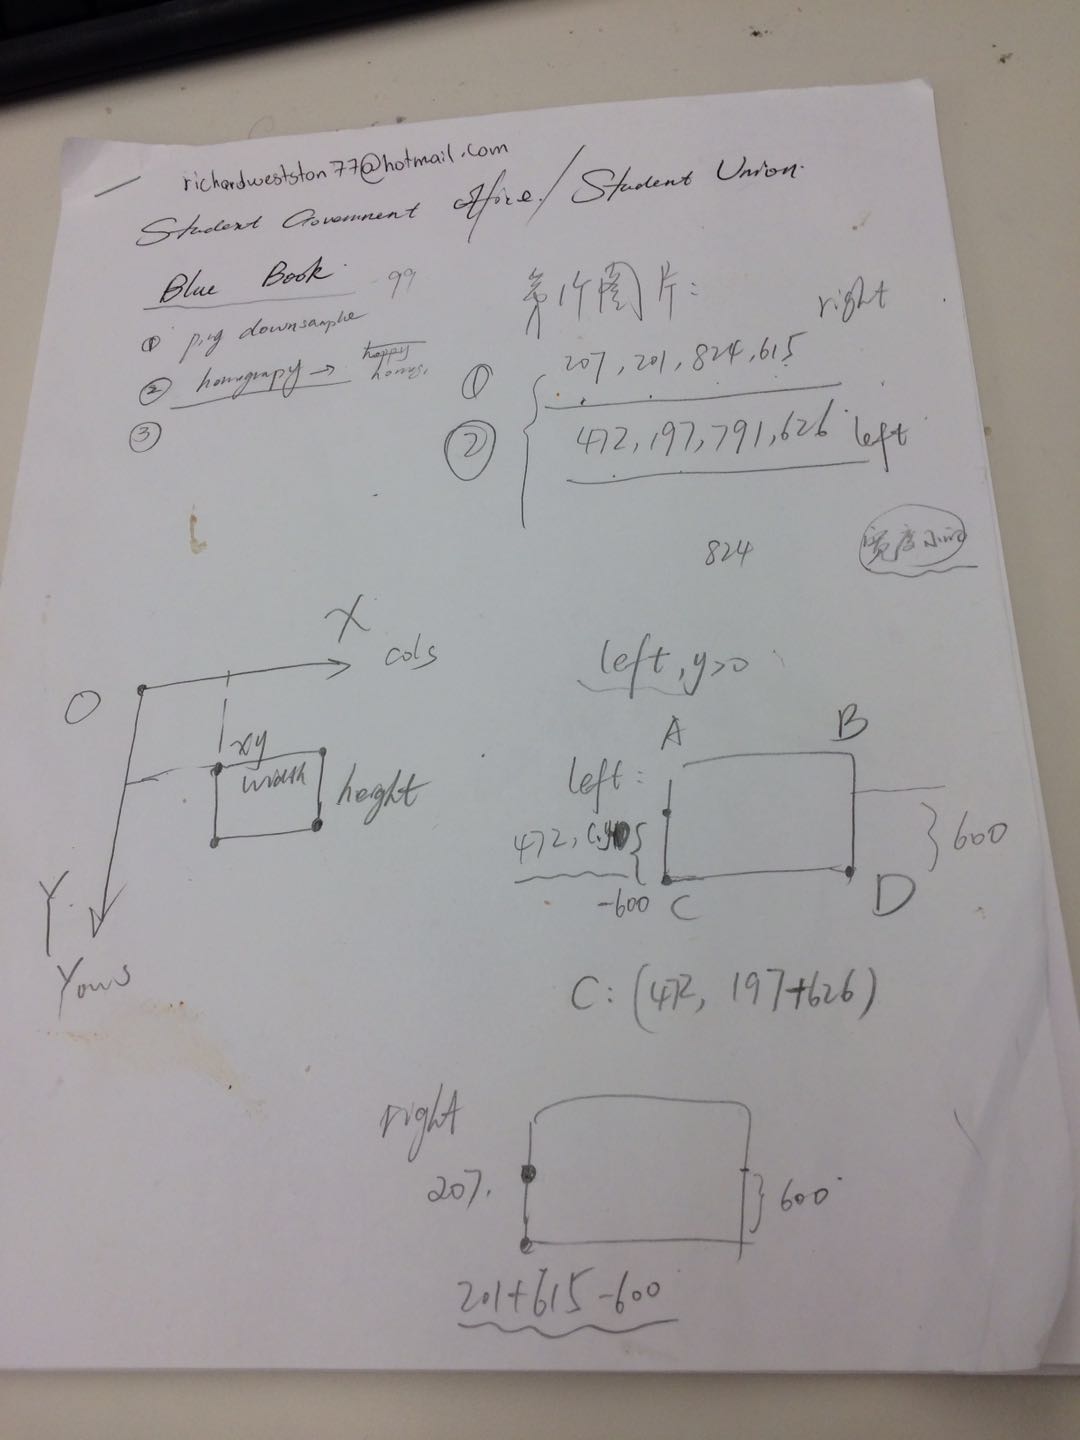 richardwestston77@hotmail.com
Student Government Office/Student Union.
Blue Book. 99
① ping downsample
② homograpy →
③
第1个图片:
right
① 207, 201, 824, 615
② 472, 197, 791, 626 left
824
宽度
X
cols
O
xy
width
height
Y
left, y>0
A
B
left:
472,
-600
C
D
600
C: (472, 197+626)
right
207.
600
201+615-600